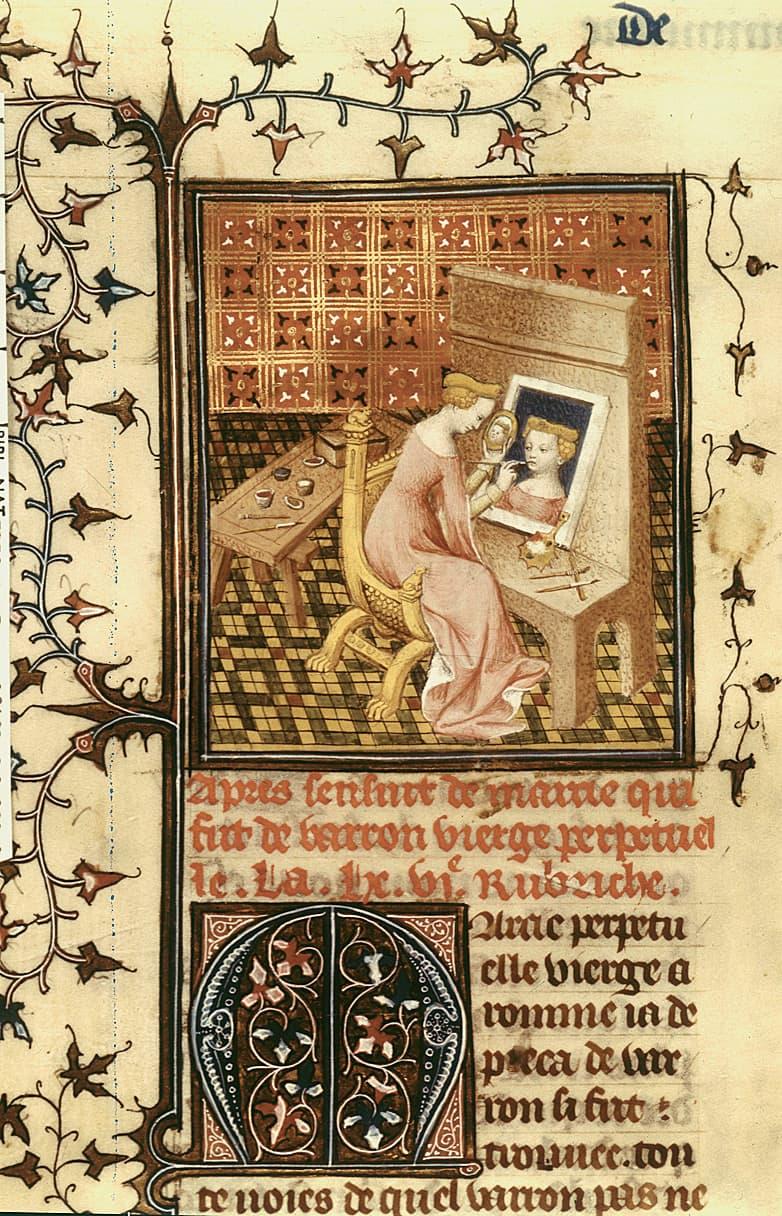 De
Apres sensuit de marcie qui
fut de varron vierge perpetuel
le. La. lx. vje. Rubriche.
Marcie perpetu
elle vierge a
romme ia de
pieca de var
ron si fut
trouuee. tou
te uoies de quel varron pas ne